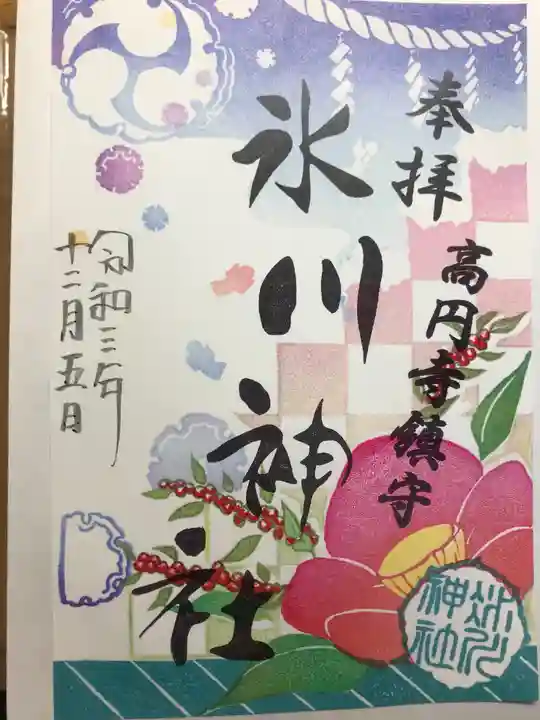 奉拝
高円寺鎮守
氷川神社
令和三年
十二月五日
氷川
神社